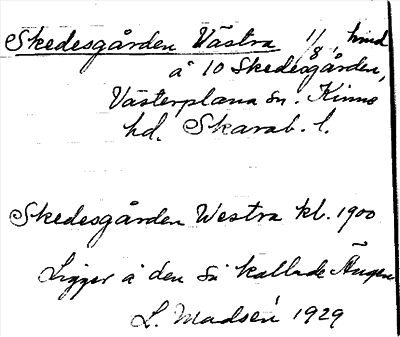 Skedesgården Västra 1/8, hmd
å 10 Skedesgården,
Västerplana sn. Kinne
hd. Skarab. l.
Skedesgården Westra kb. 1900
Ligger å den så kallade Ängen
L. Madsén 1929